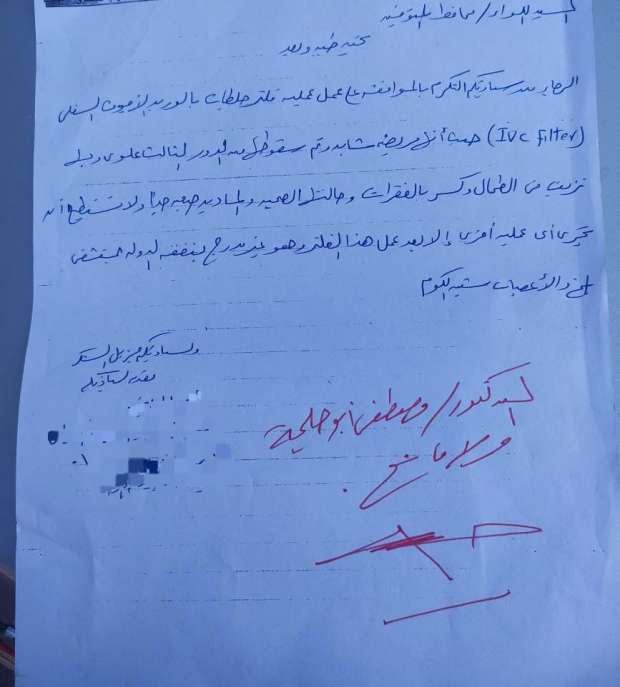 السيد اللواء / محافظ المنوفية
تحية طيبة وبعد
الرجاء من سيادتكم التكرم بالموافقة على عمل عملية فلتر جلطات بالوريد الأجوف السفلى
(IVC Filter) حيث أننى مريضة شابة وتم سقوطى من الدور الثالث علوى وبها
نزيف فى الطحال وكسر بالفقرات وحالتها الصحية والمادية صعبة جداً ولا تستطيع أن
تجرى أى عملية أخرى إلا بعد عمل هذا الفلتر وهو غير مدرج بنفقة الدولة بمستشفى
المخ والأعصاب شبين الكوم
ولسيادتكم جزيل الشكر
مقدمه لسيادتكم
السيد الدكتور / مصطفى أبو حليمة
ولا مانع